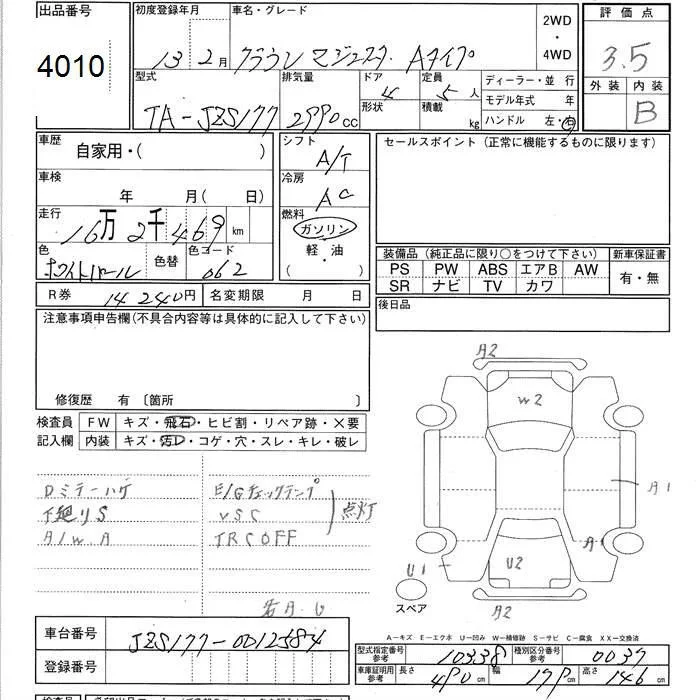 出品番号
4010
初度登録年月
13 2月
車名・グレード
クラウン マジェスタ Aタイプ
2WD
・
4WD
評価点
3.5
外装 内装
B
型式
TA-JZS177
排気量
2990cc
ドア
4
形状
定員
5人
積載
kg
ディーラー・並行
モデル年式 年
ハンドル 左・右
車歴
自家用・( )
車検
年 月( 日)
走行
16万2千469km
色
ホワイトパール
色替
色コード
062
シフト
A/T
冷房
AC
燃料
ガソリン
軽・油
( )
セールスポイント(正常に機能するものに限ります)
装備品(純正品に限り○をつけて下さい)
新車保証書
PS PW ABS エアB AW
有・無
SR ナビ TV カワ
R券 14240円
名変期限 月 日
後日品
注意事項申告欄(不具合内容等は具体的に記入して下さい)
修復歴 有〔箇所 〕
検査員
記入欄
FW キズ・飛石・ヒビ割・リペア跡・×要
内装 キズ・汚レ・コゲ・穴・スレ・キレ・破レ
Dミラーハゲ
下廻りS
A/W A
E/Gチェックランプ
VSC
TRC OFF
点灯
A2
W2
A1
A1
U1
U2
A2
スペア
A-キズ E-エクボ U-凹み W-補修跡 S-サビ C-腐食 XX-交換済
車台番号
JZS177-0012584
登録番号
型式指定番号
参考
10338
種別区分番号
参考
0037
車庫証明用
参考
長さ
490cm
幅
179cm
高さ
146cm